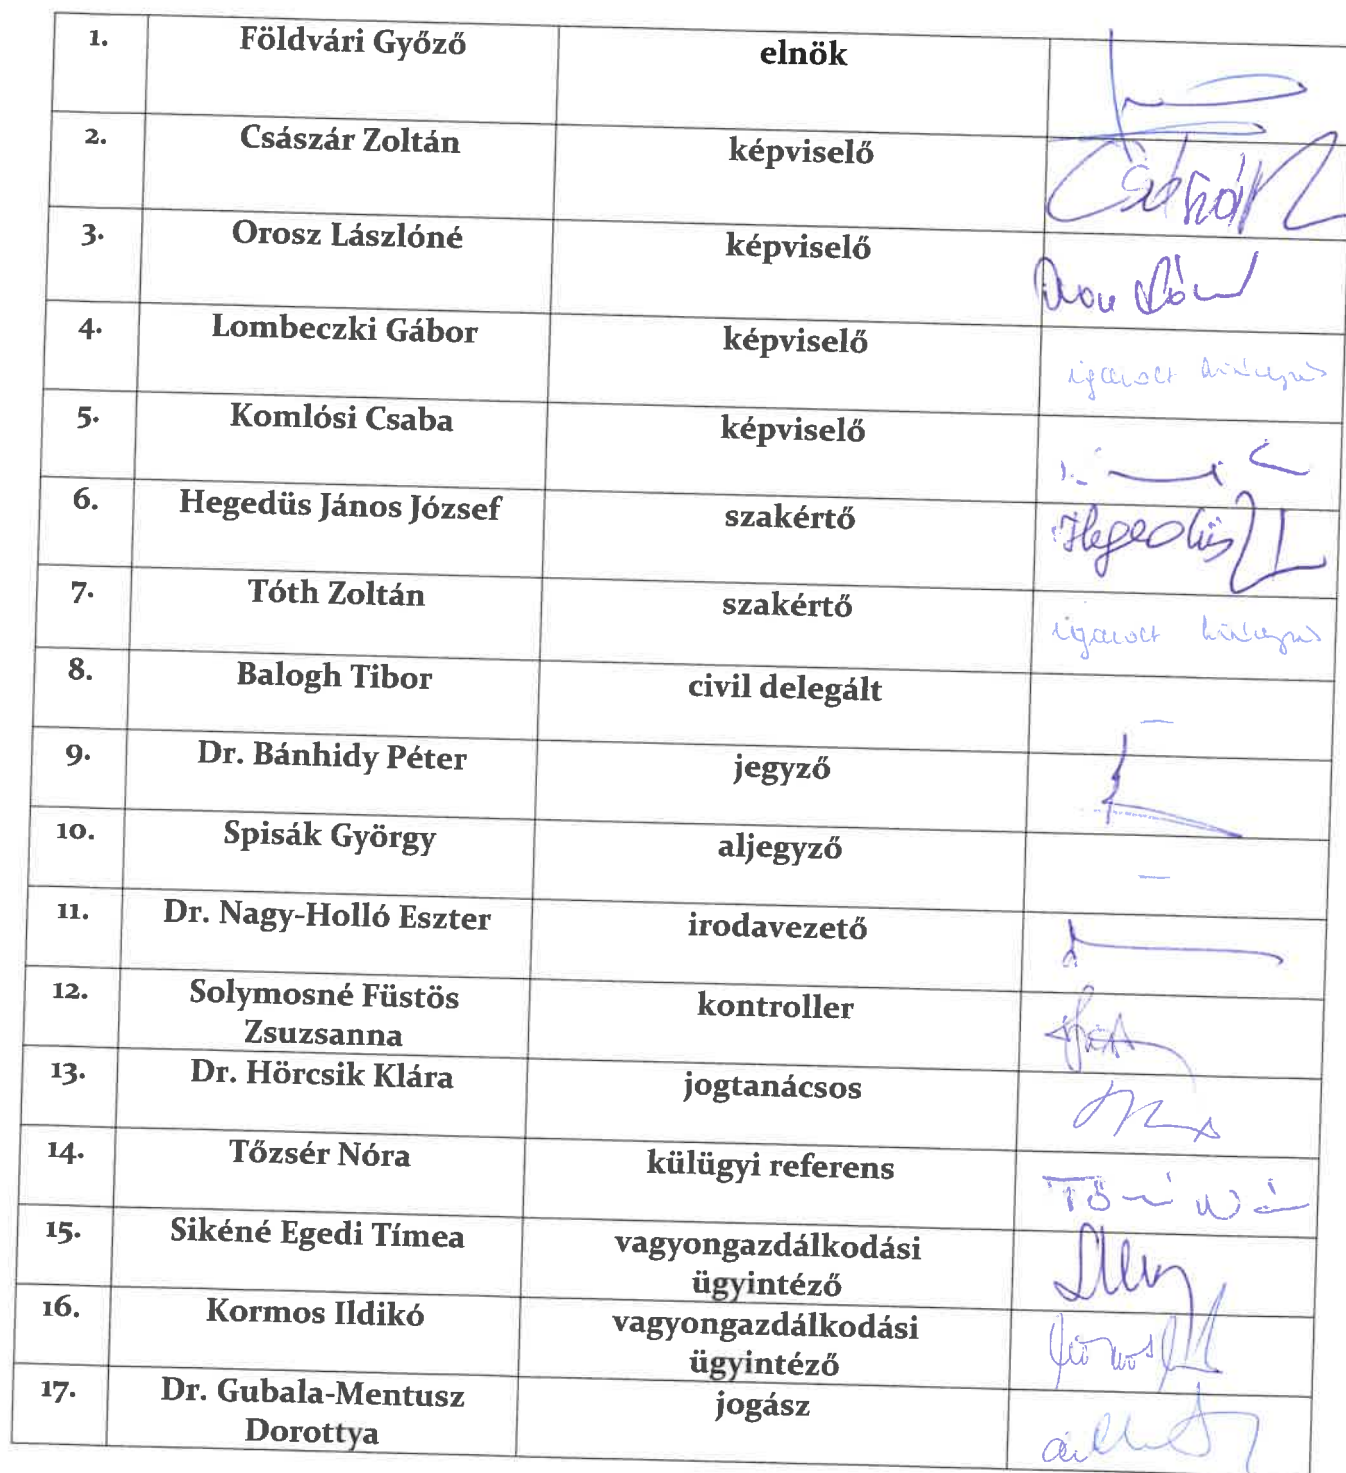 1. Földvári Győző elnök
2. Császár Zoltán képviselő
3. Orosz Lászlóné képviselő
4. Lombeczki Gábor képviselő igazolt hiányzás
5. Komlósi Csaba képviselő
6. Hegedüs János József szakértő Hegedüs
7. Tóth Zoltán szakértő igazolt hiányzás
8. Balogh Tibor civil delegált —
9. Dr. Bánhidy Péter jegyző
10. Spisák György aljegyző —
11. Dr. Nagy-Holló Eszter irodavezető
12. Solymosné Füstös kontroller
Zsuzsanna
13. Dr. Hörcsik Klára jogtanácsos
14. Tőzsér Nóra külügyi referens
15. Sikéné Egedi Tímea vagyongazdálkodási
ügyintéző
16. Kormos Ildikó vagyongazdálkodási
ügyintéző
17. Dr. Gubala-Mentusz jogász
Dorottya